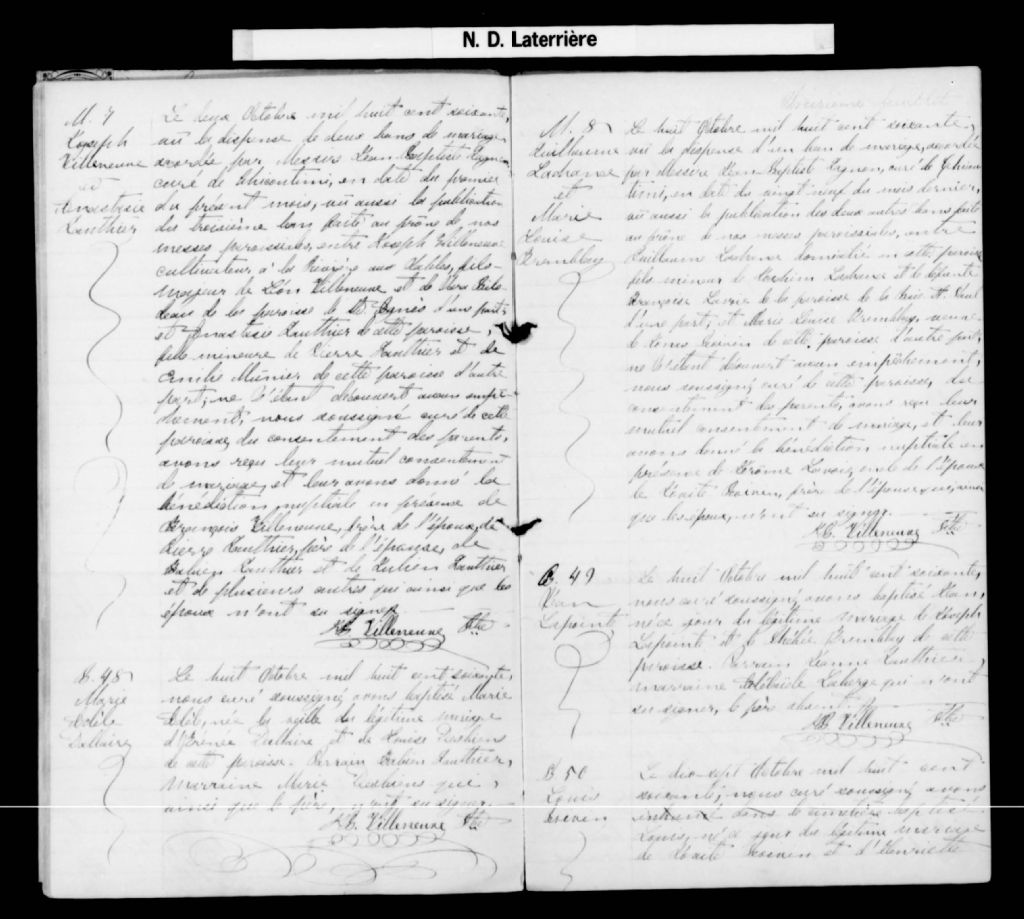 N. D. Laterrière
M. 7
Joseph
Villeneuve
et
Anastasie
Gauthier
Le deux Octobre mil huit cent soixante,
vû la dispense de deux bans de mariage
accordée par Messire Jean Baptiste Gagnon
curé de Chicoutimi, en date du premier
du présent mois, vû aussi la publication
du troisième ban faite au prône de nos
messes paroissiales, entre Joseph Villeneuve
cultivateur, à la Rivière aux Sables, fils
majeur de Léon Villeneuve et de
de la paroisse de St. Agnès d'une part;
et Anastasie Gauthier de cette paroisse,
fille mineure de Pierre Gauthier et de
Emilie Munier de cette paroisse d'autre
part; ne s'étant découvert aucun empê-
chement, nous soussigné curé de cette
paroisse, du consentement des parents,
avons reçu leur mutuel consentement
de mariage, et leur avons donné la
bénédiction nuptiale en présence de
François Villeneuve, frère de l'époux, de
Pierre Gauthier, père de l'épouse, de
Gauthier et de Julien Gauthier
et de plusieurs autres qui ainsi que les
époux n'ont su signer.
Villeneuve Ptre
B. 48
Marie
Adèle
Dallaire
Le huit Octobre mil huit cent soixante,
nous curé soussigné avons baptisé Marie
Adèle, née la veille du légitime mariage
d'Irénée Dallaire et de Louise
de cette paroisse. Parrain Gauthier,
Marraine Marie qui,
ainsi que le père, n'ont su signer.
Villeneuve Ptre
Treizième feuillet
M. 8
Guillaume
Lachance
et
Marie
Louise
Tremblay
Le huit Octobre mil huit cent soixante,
vû la dispense d'un ban de mariage, accordée
par Messire Jean Baptiste Gagnon, curé de Chicou-
timi, en date du vingt neuf du mois dernier,
vû aussi la publication des deux autres bans faite
au prône de nos messes paroissiales, entre
Guillaume Lachance domicilié en cette paroisse
fils mineur de Lachance et de défunte
Françoise de la paroisse de la Baie St. Paul
d'une part; et Marie Louise Tremblay, veuve
de de cette paroisse d'autre part;
ne s'étant découvert aucun empêchement,
nous soussigné curé de cette paroisse, du
consentement des parents, avons reçu leur
mutuel consentement de mariage, et leur
avons donné la bénédiction nuptiale en
présence de Jérôme oncle de l'épouse
de frère de l'épouse qui, ainsi
que les époux, n'ont su signer.
Villeneuve Ptre
B. 49
Jean
Lapointe
Le huit Octobre mil huit cent soixante,
nous curé soussigné avons baptisé Jean,
né ce jour du légitime mariage de Joseph
Lapointe et de Tremblay de cette
paroisse. Parrain Gauthier,
marraine Laberge qui n'ont
su signer, le père absent.
Villeneuve Ptre
B 50
Louis
Le dix-sept Octobre mil huit cent
soixante, nous curé soussigné avons
inhumé dans le cimetière baptisé
Louis, né ce jour du légitime mariage
de et d'Henriette